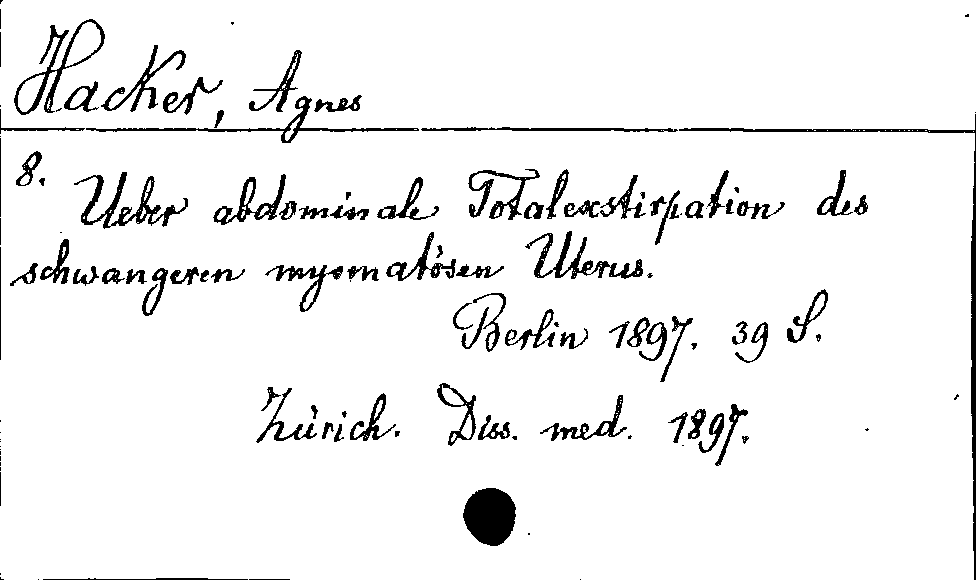 Hacker, Agnes
8.
Ueber abdominale Totalexstirpation des
schwangeren myomatösen Uterus.
Berlin 1897. 39 S.
Zürich. Diss. med. 1897.